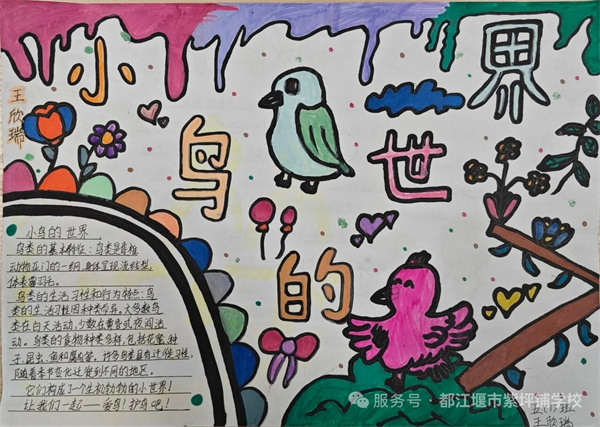 小鸟的世界
王欣瑞
小鸟的世界
鸟类的基本特征：鸟类是脊椎
动物亚门的一纲，身体呈现流线型，
体表覆羽毛。
鸟类的生活习性和行为特点：鸟
类的生活习性因种类而异，大多数鸟
类在白天活动，少数在黄昏或夜间活
动。鸟类的食物种类多样，包括花蜜、种
子、昆虫、鱼和腐肉等。许多鸟类具有迁徙习性，
随着季节变化迁徙到不同的地区。
它们构成了一个生机勃勃的小世界！
让我们一起——爱鸟！护鸟吧！
服务号·都江堰市紫坪铺学校
王欣瑞